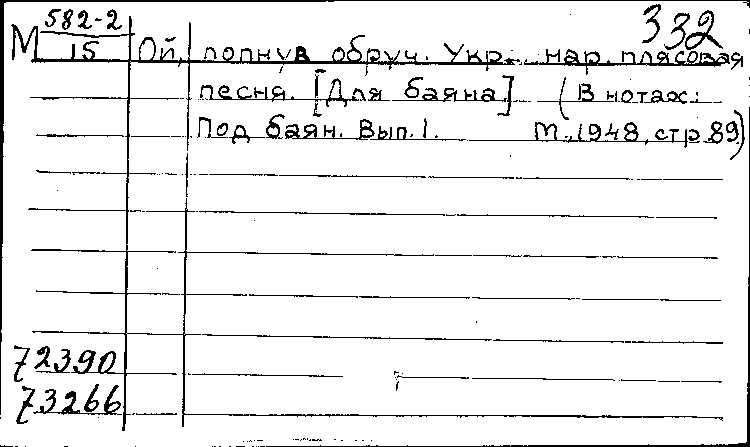 332
М 582-2
15
Ой, лопнув обруч. Укр. нар. плясовая
песня. [Для баяна] (В нотах:
Под баян. Вып. 1. М., 1948, стр. 89)
72390
73266